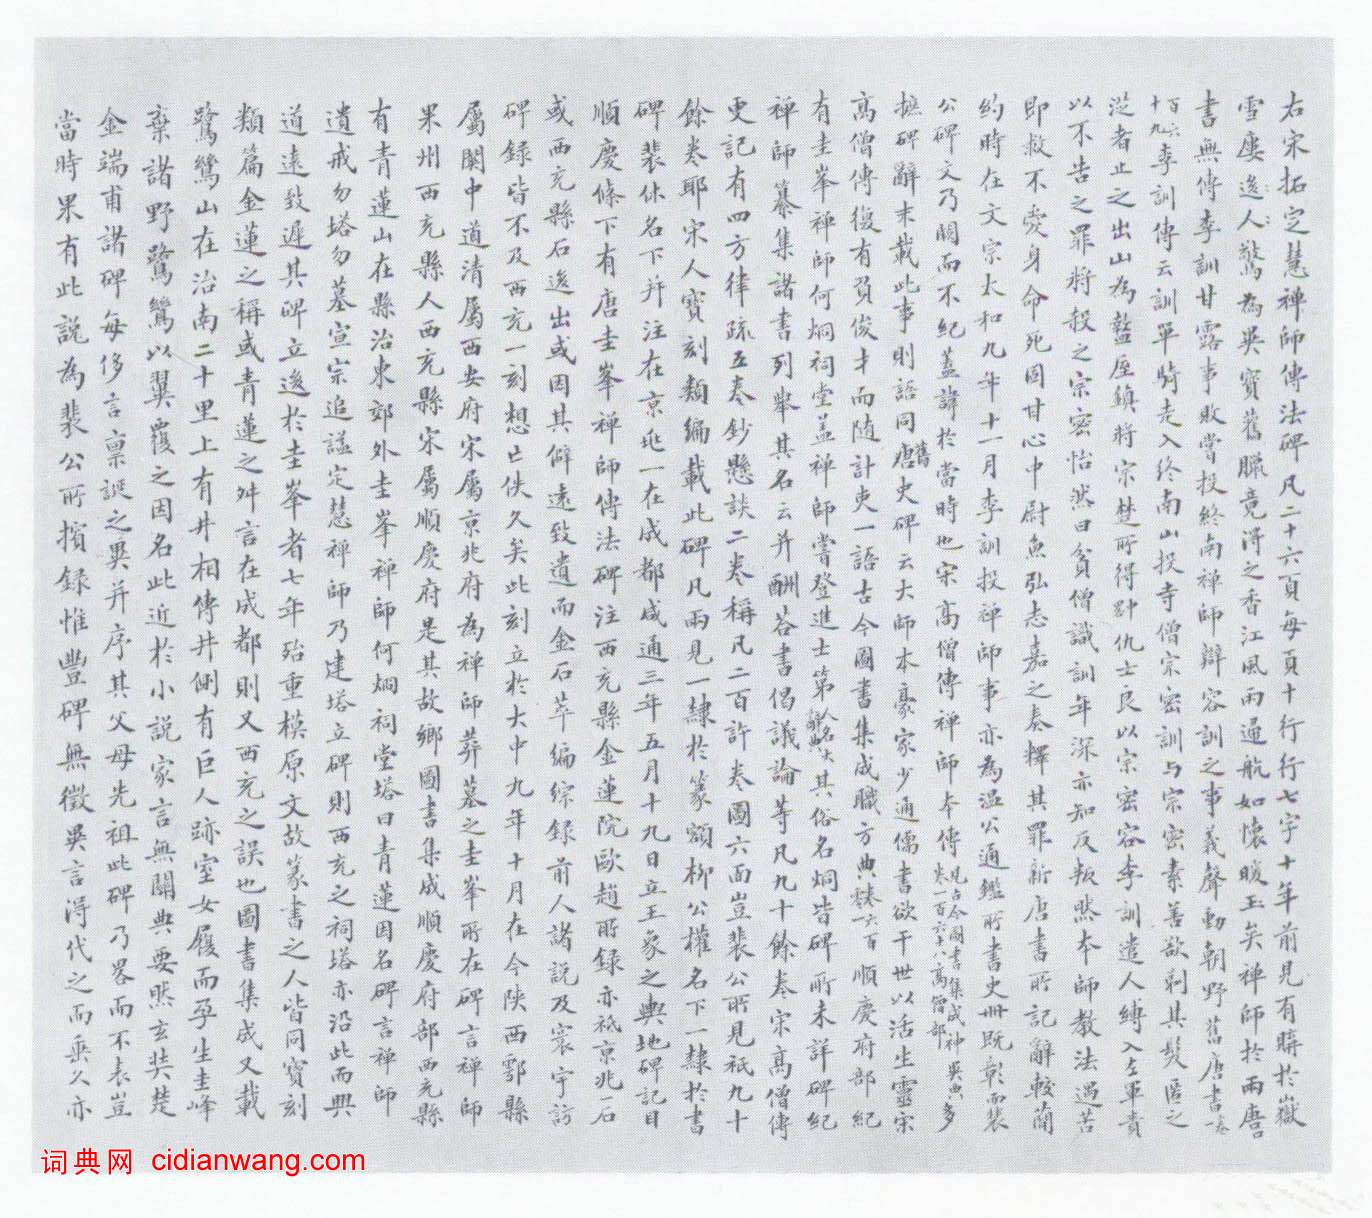 右宋拓定慧禪師傳法碑凡二十六頁每頁十行行七字十年前見有購於嶽
雪廔逸人驚為異寶舊臘竟得之香江風雨通航如懷暖玉矣禪師於兩唐
書無傳李訓甘露事敗嘗投終南禪師辯容訓之事義聲動朝野舊唐書卷一
百六十九李訓傳云訓單騎走入終南山投寺僧宗密訓与宗密素善欲剃其髮匿之
從者止之出山為盩厔鎮將宗楚所得對仇士良以宗密容李訓遣人縛入左軍責
以不告之罪將殺之宗密怡然曰貧僧識訓年深亦知反叛然本師教法遇苦
即救不愛身命死固甘心中尉魚弘志嘉之奏釋其罪新唐書所記辭較簡
約時在文宗太和九年十一月李訓投禪師事亦為溫公通鑑所書史冊既彰而裴
公碑文乃闕而不紀蓋諱於當時也宋高僧傳禪師本傳見古今圖書集成神異典卷一百六十八高僧部多
摭碑辭末載此事則語同舊唐史碑云大師本豪家少通儒書欲干世以活生靈宋
高僧傳復有負俊才而隨計吏一語古今圖書集成職方典卷六百順慶府部紀
有圭峯禪師何炯祠堂蓋禪師嘗登進士第其俗名炯皆碑所未詳碑紀
禪師纂集諸書列舉其名云并酬荅書偈議論等凡九十餘卷宋高僧傳
更記有四方律疏五卷鈔懸談二卷稱凡二百許卷圖六面豈裴公所見祇九十
餘卷耶宋人寶刻類編載此碑凡兩見一隸於篆額柳公權名下一隸於書
碑裴休名下并注在京兆一在成都咸通三年五月十九日立王象之輿地碑記目
順慶條下有唐圭峯禪師傳法碑注西充縣金蓮院歐趙所錄亦祇京兆一石
或西充縣石後出或因其僻遠致遺而金石萃編綜錄前人諸說及寰宇訪
碑錄皆不及西充一刻想亡佚久矣此刻立於大中九年十月在今陝西鄠縣
屬關中道清屬西安府宋屬京兆府為禪師葬墓之圭峯所在碑言禪師
果州西充縣人西充縣宋屬順慶府是其故鄉圖書集成順慶府部西充縣
有青蓮山在縣治東郊外圭峯禪師何炯祠堂塔曰青蓮因名碑言禪師
遺戒勿塔勿墓宣宗追諡定慧禪師乃建塔立碑則西充之祠塔亦沿此而興
道遠致遲其碑立後於圭峯者七年殆重模原文故篆書之人皆同寶刻
類篇金蓮之稱或青蓮之舛言在成都則又西充之誤也圖書集成又載
鷟鸑山在治南二十里上有井相傳井側有巨人跡室女履而孕生圭峰
棄諸野鷟鸑以翼覆之因名此近於小說家言無關典要然玄奘楚
金端甫諸碑每侈言稟誕之異并序其父母先祖此碑乃畧而不表豈
當時果有此說為裴公所擯錄惟豐碑無徵異言得代之而乘久亦
词典网 cidianwang.com